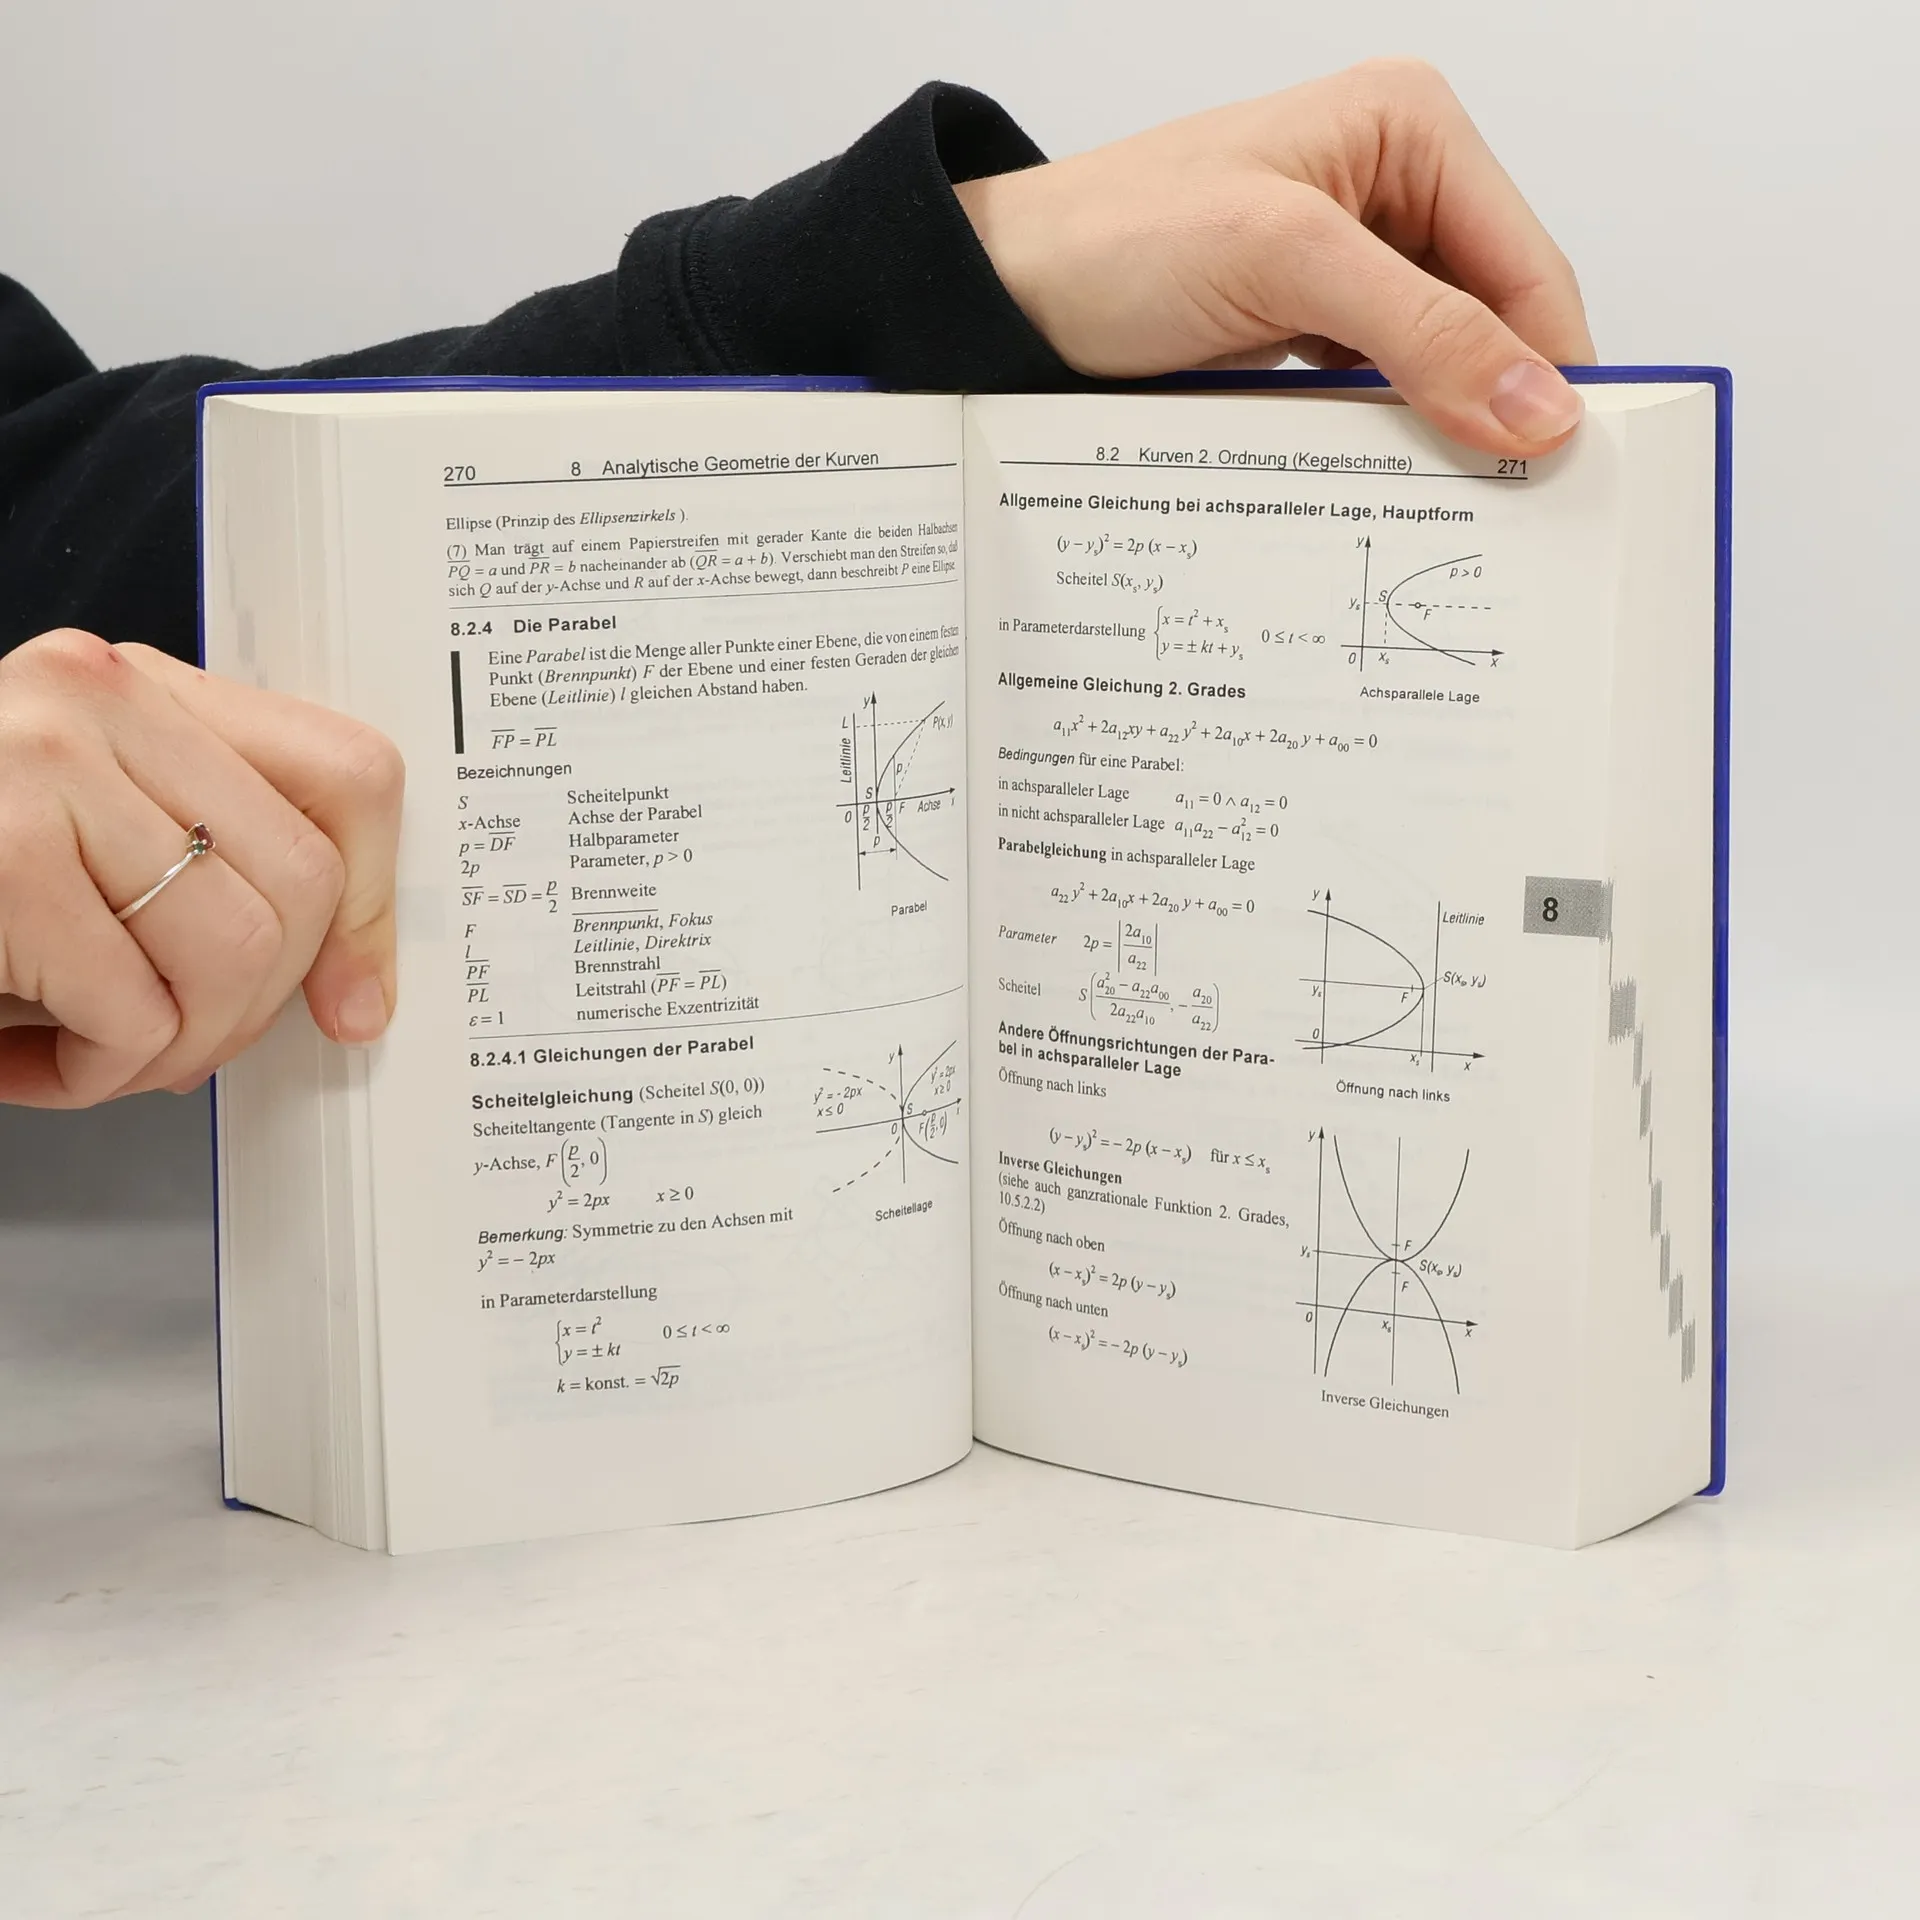 270 8 Analytische Geometrie der Kurven
Ellipse (Prinzip des Ellipsenzirkels ).
(7) Man trägt auf einem Papierstreifen mit gerader Kante die beiden Halbachsen
PQ = a und PR = b nacheinander ab (QR = a + b). Verschiebt man den Streifen so, daß
sich Q auf der y-Achse und R auf der x-Achse bewegt, dann beschreibt P eine Ellipse
8.2.4 Die Parabel
Eine Parabel ist die Menge aller Punkte einer Ebene, die von einem festen
Punkt (Brennpunkt) F der Ebene und einer festen Geraden der gleichen
Ebene (Leitlinie) l gleichen Abstand haben.
FP = PL
Bezeichnungen
S Scheitelpunkt
x-Achse Achse der Parabel
p = DF Halbparameter
2p Parameter, p > 0
SF = SD = p/2 Brennweite
F Brennpunkt, Fokus
l Leitlinie, Direktrix
PF Brennstrahl
PL Leitstrahl (PF = PL)
ε = 1 numerische Exzentrizität
y
L
P(x,y)
Leitlinie
p
S
0 p/2 p/2 F Achse
p
Parabel
8.2.4.1 Gleichungen der Parabel
Scheitelgleichung (Scheitel S(0, 0))
Scheiteltangente (Tangente in S) gleich
y-Achse, F(p/2, 0)
y² = 2px x ≥ 0
Bemerkung: Symmetrie zu den Achsen mit
y² = – 2px
in Parameterdarstellung
x = t²
y = ± kt 0 ≤ t < ∞
k = konst. = √2p
y
y² = 2px
x ≥ 0
y² = - 2px
x ≤ 0
S
0 F(p/2,0)
Scheitellage
8.2 Kurven 2. Ordnung (Kegelschnitte) 271
Allgemeine Gleichung bei achsparalleler Lage, Hauptform
(y – yₛ)² = 2p (x – xₛ)
Scheitel S(xₛ, yₛ)
in Parameterdarstellung x = t² + xₛ
y = ± kt + yₛ 0 ≤ t < ∞
y
p > 0
yₛ S F
0 xₛ x
Achsparallele Lage
Allgemeine Gleichung 2. Grades
a₁₁x² + 2a₁₂xy + a₂₂y² + 2a₁₀x + 2a₂₀y + a₀₀ = 0
Bedingungen für eine Parabel:
in achsparalleler Lage a₁₁ = 0 ∧ a₁₂ = 0
in nicht achsparalleler Lage a₁₁a₂₂ – a₁₂² = 0
Parabelgleichung in achsparalleler Lage
a₂₂y² + 2a₁₀x + 2a₂₀y + a₀₀ = 0
Parameter 2p = |2a₁₀/a₂₂|
Scheitel S((a₂₀² – a₂₂a₀₀)/(2a₂₂a₁₀), – a₂₀/a₂₂)
Andere Öffnungsrichtungen der Para-
bel in achsparalleler Lage
Öffnung nach links
(y – yₛ)² = – 2p (x – xₛ) für x ≤ xₛ
y
Leitlinie
S(xₛ, yₛ)
yₛ F
0
xₛ x
Öffnung nach links
8
Inverse Gleichungen
(siehe auch ganzrationale Funktion 2. Grades,
10.5.2.2)
Öffnung nach oben
(x – xₛ)² = 2p (y – yₛ)
Öffnung nach unten
(x – xₛ)² = – 2p (y – yₛ)
y
yₛ F
S(xₛ, yₛ)
F
0 xₛ x
Inverse Gleichungen